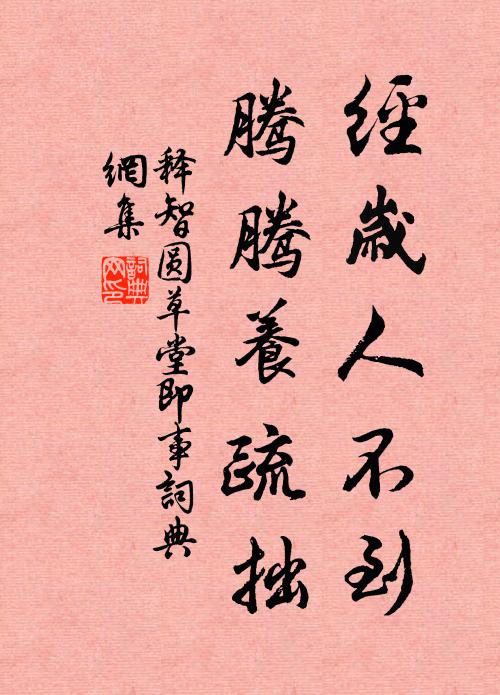 經歲人不到
騰騰養疏拙
释智圆草堂即事詞典
網集
詞典
网印